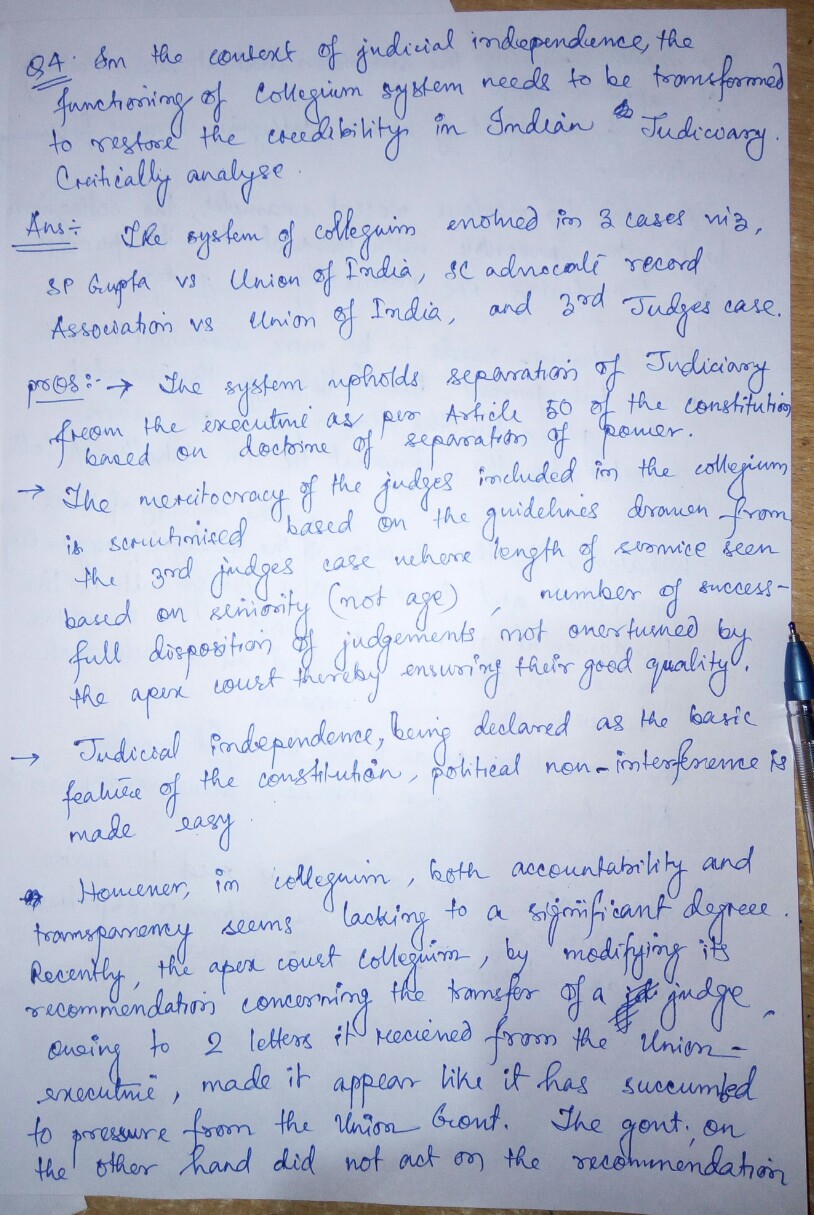 Q4. In the context of judicial independence, the
functioning of Collegium system needs to be transformed
to restore the credibility in Indian Judiciary.
Critically analyse.
Ans:- The system of collegium evolved in 3 cases viz,
SP Gupta vs Union of India, SC advocate record
Association vs Union of India, and 3rd Judges case.
pros:- → The system upholds separation of Judiciary
from the executive as per Article 50 of the constitution
based on doctrine of separation of power.
→ The meritocracy of the judges included in the collegium
is scrutinised based on the guidelines drawn from
the 3rd judges case where length of service seen
based on seniority (not age), number of success-
full disposition of judgements not overturned by
the apex court thereby ensuring their good quality.
→ Judicial independence, being declared as the basic
feature of the constitution, political non-interference is
made easy.
However, in collegium, both accountability and
transparency seems lacking to a significant degree.
Recently, the apex court Collegium, by modifying its
recommendation concerning the transfer of a judge
owing to 2 letters it recieved from the Union-
executive, made it appear like it has succumbed
to pressure from the Union Govt. The govt. on
the other hand did not act on the recommendation